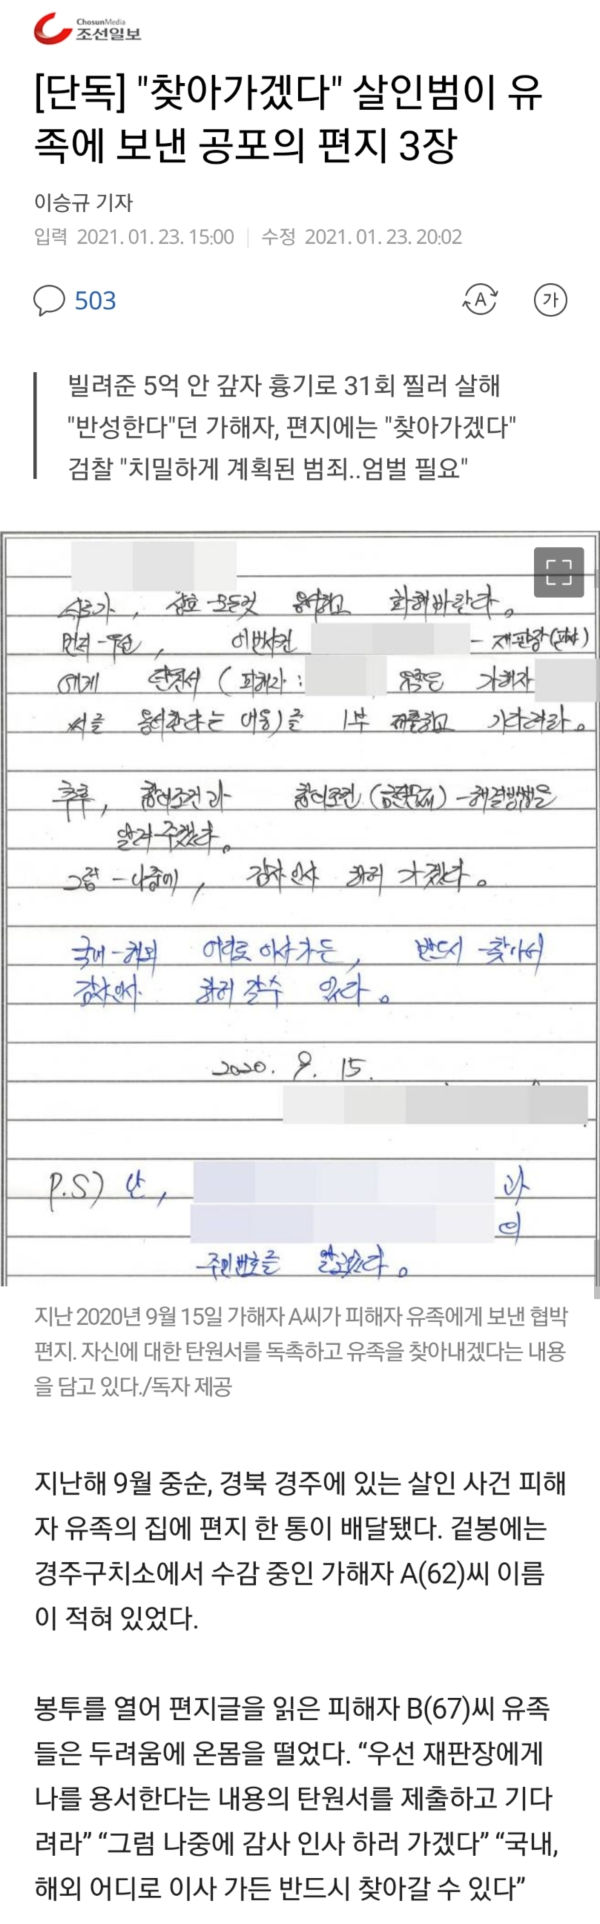 ChosunMedia
조선일보
[단독] "찾아가겠다" 살인범이 유
족에 보낸 공포의 편지 3장
이승규 기자
입력 2021. 01. 23. 15:00 | 수정 2021. 01. 23. 20:02
503
A 가
빌려준 5억 안 갚자 흉기로 31회 찔러 살해
"반성한다"던 가해자, 편지에는 "찾아가겠다"
검찰 "치밀하게 계획된 범죄..엄벌 필요"
상호 모든것 용서하고 화해바란다.
먼저 우선, 이번사건 재판장(판사)
에게 탄원서 (피해자: 유족은 가해자
씨를 용서한다는 내용)을 1부 제출하고 기다려라.
추후, 합의조건과 합의조건(금전문제) 해결방법을
알려주겠다.
그럼 나중에, 감사인사 하러 가겠다.
국내-해외 어디로 이사가든, 반드시 찾아서
감사인사 하러 갈수 있다.
2020. 9. 15.
P.S) 난, 과
의
주민번호를 알고있다.
지난 2020년 9월 15일 가해자 A씨가 피해자 유족에게 보낸 협박
편지. 자신에 대한 탄원서를 독촉하고 유족을 찾아내겠다는 내용
을 담고 있다./독자 제공
지난해 9월 중순, 경북 경주에 있는 살인 사건 피해
자 유족의 집에 편지 한 통이 배달됐다. 겉봉에는
경주구치소에서 수감 중인 가해자 A(62)씨 이름
이 적혀 있었다.
봉투를 열어 편지글을 읽은 피해자 B(67)씨 유족
들은 두려움에 온몸을 떨었다. “우선 재판장에게
나를 용서한다는 내용의 탄원서를 제출하고 기다
려라” “그럼 나중에 감사 인사 하러 가겠다” “국내,
해외 어디로 이사 가든 반드시 찾아갈 수 있다”